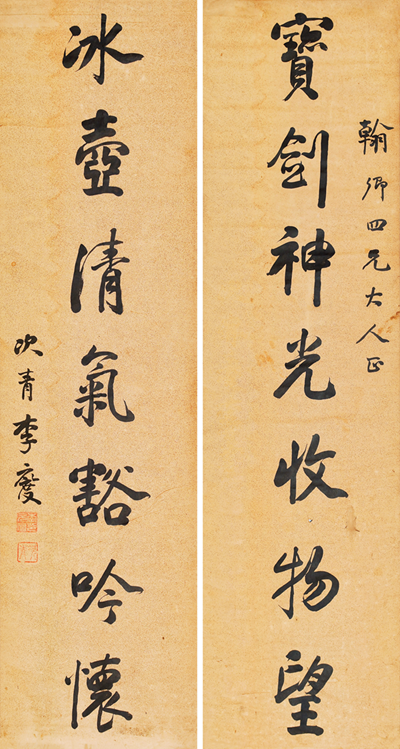 翰卿四兄大人正
寶劍神光收物望
冰壺清氣豁吟懷
次青李